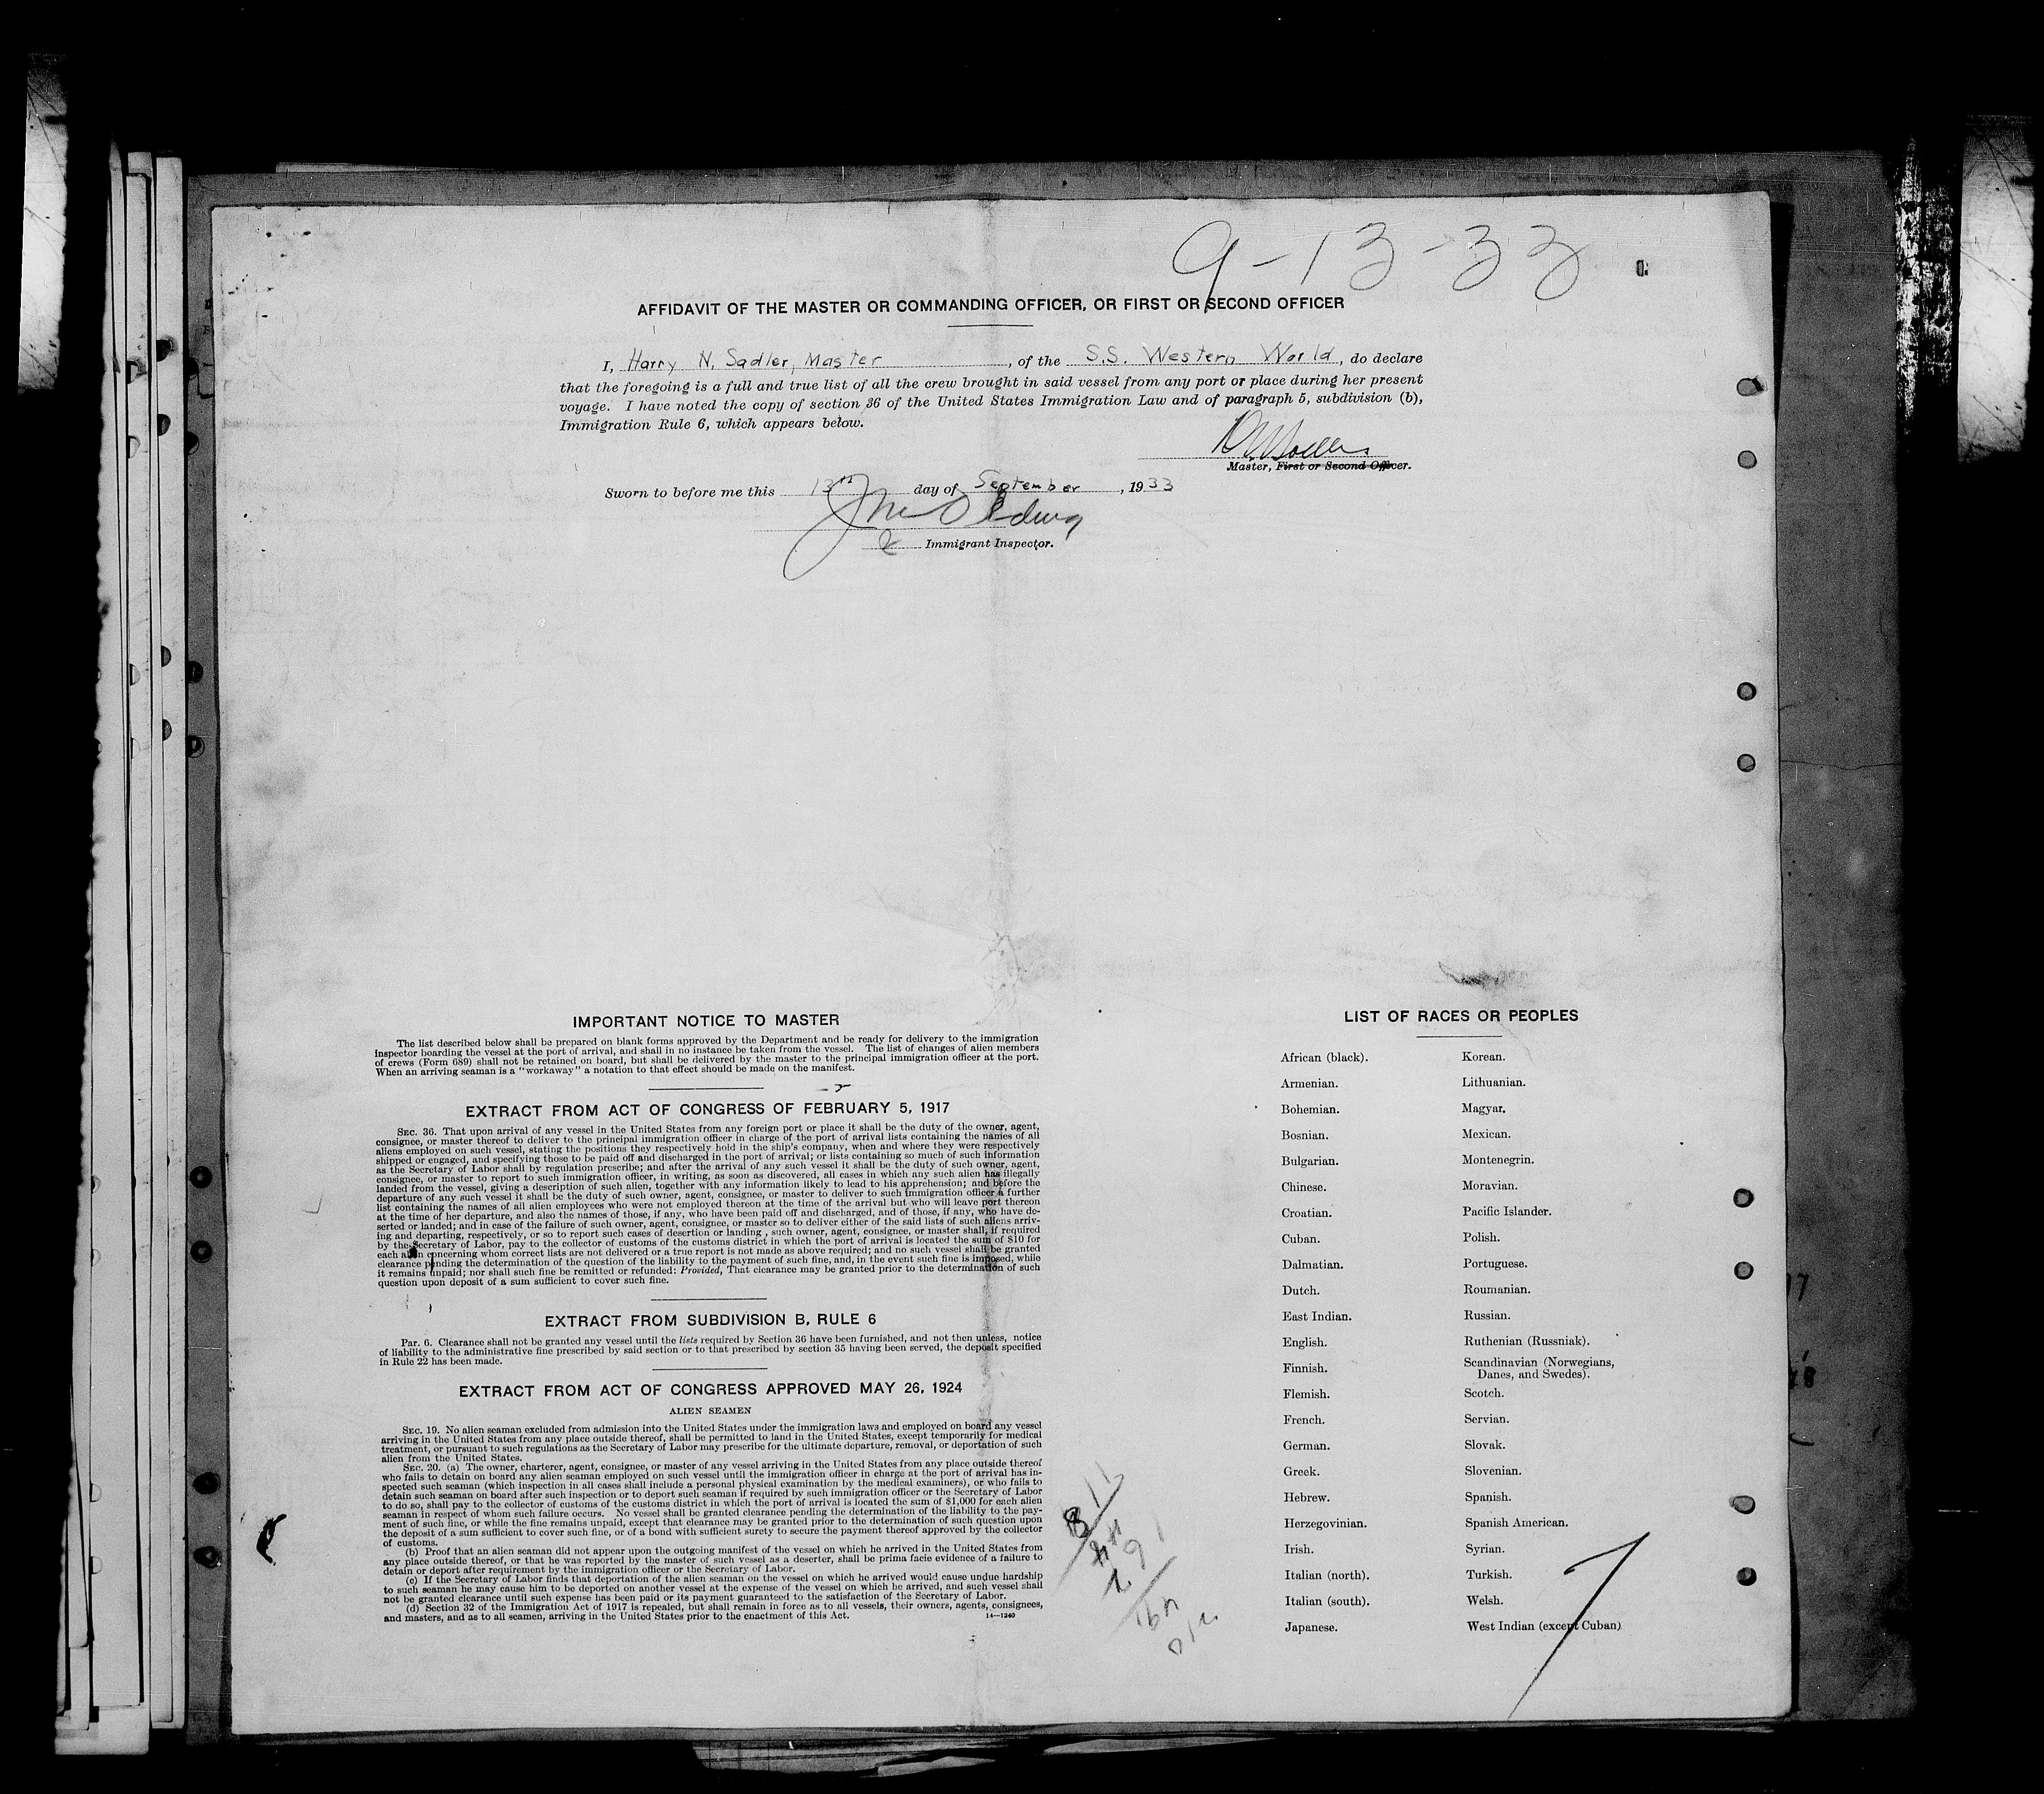 9-13-33
AFFIDAVIT OF THE MASTER OR COMMANDING OFFICER, OR FIRST OR SECOND OFFICER
I, Harry N. Sadler, Master, of the S.S. Western World, do declare
that the foregoing is a full and true list of all the crew brought in said vessel from any port or place during her present
voyage. I have noted the copy of section 36 of the United States Immigration Law and of paragraph 5, subdivision (b),
Immigration Rule 6, which appears below.
Master, First or Second Officer.
Sworn to before me this 13th day of September, 1933
Immigrant Inspector.
IMPORTANT NOTICE TO MASTER
The list described below shall be prepared on blank forms approved by the Department and be ready for delivery to the immigration
inspector boarding the vessel at the port of arrival, and shall in no instance be taken from the vessel. The list of changes of alien members
of crews (Form 689) shall not be retained on board, but shall be delivered by the master to the principal immigration officer at the port.
When an arriving seaman is a "workaway" a notation to that effect should be made on the manifest.
EXTRACT FROM ACT OF CONGRESS OF FEBRUARY 5, 1917
SEC. 36. That upon arrival of any vessel in the United States from any foreign port or place it shall be the duty of the owner, agent,
consignee, or master thereof to deliver to the principal immigration officer in charge of the port of arrival lists containing the names of all
aliens employed on such vessel, stating the positions they respectively hold in the ship's company, when and where they were respectively
shipped or engaged, and specifying those to be paid off and discharged in the port of arrival; or lists containing so much of such information
as the Secretary of Labor shall by regulation prescribe; and after the arrival of any such vessel it shall be the duty of such owner, agent,
consignee, or master to report to such immigration officer, in writing, as soon as discovered, all cases in which any such alien has illegally
landed from the vessel, giving a description of such alien, together with any information likely to lead to his apprehension; and before the
departure of any such vessel it shall be the duty of such owner, agent, consignee, or master to deliver to such immigration officer a further
list containing the names of all alien employees who were not employed thereon at the time of the arrival but who will leave port thereon
at the time of her departure, and also the names of those, if any, who have been paid off and discharged, and of those, if any, who have de-
serted or landed; and in case of the failure of such owner, agent, consignee, or master so to deliver either of the said lists of such aliens arriv-
ing and departing, respectively, or so to report such cases of desertion or landing , such owner, agent, consignee, or master shall, if required
by the Secretary of Labor, pay to the collector of customs of the customs district in which the port of arrival is located the sum of $10 for
each alien concerning whom correct lists are not delivered or a true report is not made as above required; and no such vessel shall be granted
clearance pending the determination of the question of the liability to the payment of such fine, and, in the event such fine is imposed, while
it remains unpaid; nor shall such fine be remitted or refunded: Provided, That clearance may be granted prior to the determination of such
question upon deposit of a sum sufficient to cover such fine.
EXTRACT FROM SUBDIVISION B, RULE 6
Par. 6. Clearance shall not be granted any vessel until the lists required by Section 36 have been furnished, and not then unless, notice
of liability to the administrative fine prescribed by said section or to that prescribed by section 35 having been served, the deposit specified
in Rule 22 has been made.
EXTRACT FROM ACT OF CONGRESS APPROVED MAY 26, 1924
ALIEN SEAMEN
SEC. 19. No alien seaman excluded from admission into the United States under the immigration laws and employed on board any vessel
arriving in the United States from any place outside thereof, shall be permitted to land in the United States, except temporarily for medical
treatment, or pursuant to such regulations as the Secretary of Labor may prescribe for the ultimate departure, removal, or deportation of such
alien from the United States.
SEC. 20. (a) The owner, charterer, agent, consignee, or master of any vessel arriving in the United States from any place outside thereof
who fails to detain on board any alien seaman employed on such vessel until the immigration officer in charge at the port of arrival has in-
spected such seaman (which inspection in all cases shall include a personal physical examination by the medical examiners), or who fails to
detain such seaman on board after such inspection or to deport such seaman if required by such immigration officer or the Secretary of Labor
to do so, shall pay to the collector of customs of the customs district in which the port of arrival is located the sum of $1,000 for each alien
seaman in respect of whom such failure occurs. No vessel shall be granted clearance pending the determination of the liability to the pay-
ment of such fine, or while the fine remains unpaid, except that clearance may be granted prior to the determination of such question upon
the deposit of a sum sufficient to cover such fine, or of a bond with sufficient surety to secure the payment thereof approved by the collector
of customs.
(b) Proof that an alien seaman did not appear upon the outgoing manifest of the vessel on which he arrived in the United States from
any place outside thereof, or that he was reported by the master of such vessel as a deserter, shall be prima facie evidence of a failure to
detain or deport after requirement by the immigration officer or the Secretary of Labor.
(c) If the Secretary of Labor finds that deportation of the alien seaman on the vessel on which he arrived would cause undue hardship
to such seaman he may cause him to be deported on another vessel at the expense of the vessel on which he arrived, and such vessel shall
not be granted clearance until such expense has been paid or its payment guaranteed to the satisfaction of the Secretary of Labor.
(d) Section 32 of the Immigration Act of 1917 is repealed, but shall remain in force as to all vessels, their owners, agents, consignees,
and masters, and as to all seamen, arriving in the United States prior to the enactment of this Act.
14—1240
LIST OF RACES OR PEOPLES
African (black).
Armenian.
Bohemian.
Bosnian.
Bulgarian.
Chinese.
Croatian.
Cuban.
Dalmatian.
Dutch.
East Indian.
English.
Finnish.
Flemish.
French.
German.
Greek.
Hebrew.
Herzegovinian.
Irish.
Italian (north).
Italian (south).
Japanese.
Korean.
Lithuanian.
Magyar.
Mexican.
Montenegrin.
Moravian.
Pacific Islander.
Polish.
Portuguese.
Roumanian.
Russian.
Ruthenian (Russniak).
Scandinavian (Norwegians,
Danes, and Swedes).
Scotch.
Servian.
Slovak.
Slovenian.
Spanish.
Spanish American.
Syrian.
Turkish.
Welsh.
West Indian (except Cuban)
7